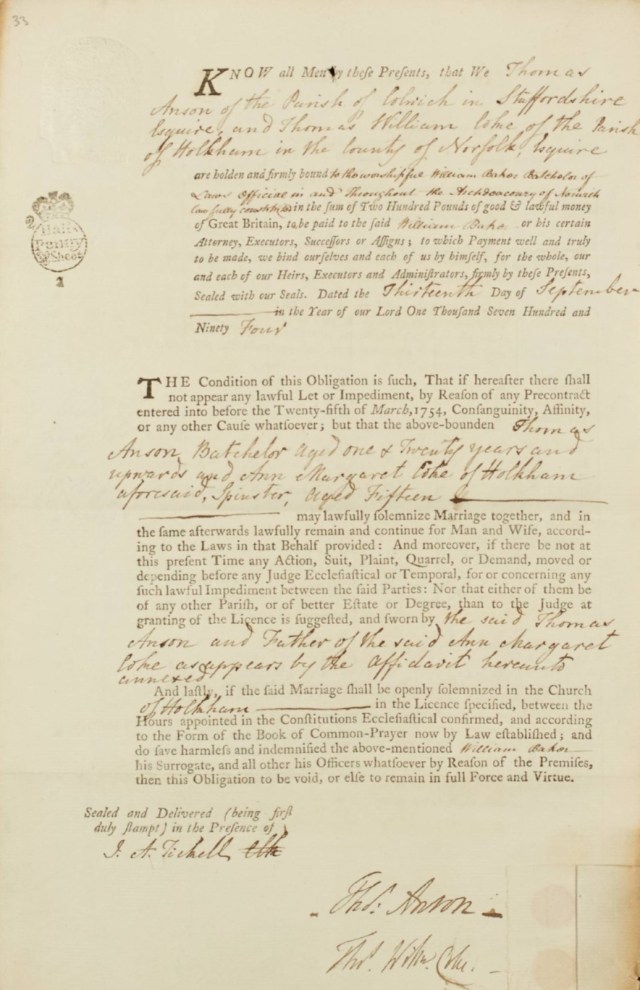 33
KNOW all Men by these Presents, that We Thomas
Anson of the Parish of Colwich in Staffordshire
Esquire, and Thomas William Coke of the Parish
of Holkham in the County of Norfolk, Esquire
are holden and firmly bound to the worshipful William Baker Batchelor of
Laws Official in and Throughout the Archdeaconry of Norwich
lawfully constituted in the sum of Two Hundred Pounds of good & lawful money
of Great Britain, to be paid to the said William Baker or his certain
Attorney, Executors, Successors or Assigns; to which Payment well and truly
to be made, we bind ourselves and each of us by himself, for the whole, our
and each of our Heirs, Executors and Administrators, firmly by these Presents,
Sealed with our Seals. Dated the Thirteenth Day of September
in the Year of our Lord One Thousand Seven Hundred and
Ninety Four
THE Condition of this Obligation is such, That if hereafter there shall
not appear any lawful Let or Impediment, by Reason of any Precontract
entered into before the Twenty-fifth of March, 1754, Consanguinity, Affinity,
or any other Cause whatsoever; but that the above-bounden Thomas
Anson Batchelor aged one & Twenty years and
upwards and Ann Margaret Coke of Holkham
aforesaid, Spinster, aged Fifteen
may lawfully solemnize Marriage together, and in
the same afterwards lawfully remain and continue for Man and Wife, accord-
ing to the Laws in that Behalf provided: And moreover, if there be not at
this present Time any Action, Suit, Plaint, Quarrel, or Demand, moved or
depending before any Judge Ecclesiastical or Temporal, for or concerning any
such lawful Impediment between the said Parties: Nor that either of them be
of any other Parish, or of better Estate or Degree, than to the Judge at
granting of the Licence is suggested, and sworn by the said Thomas
Anson and Father of the said Ann Margaret
Coke as appears by the Affidavit hereunto
annexed
And lastly, if the said Marriage shall be openly solemnized in the Church
of Holkham in the Licence specified, between the
Hours appointed in the Constitutions Ecclesiastical confirmed, and according
to the Form of the Book of Common-Prayer now by Law established; and
do save harmless and indemnified the above-mentioned William Baker
his Surrogate, and all other his Officers whatsoever by Reason of the Premises,
then this Obligation to be void, or else to remain in full Force and Virtue.
Sealed and Delivered (being first
duly stampt) in the Presence of
J. A. Tickell
Thos. Anson
Thos. Willm. Coke.